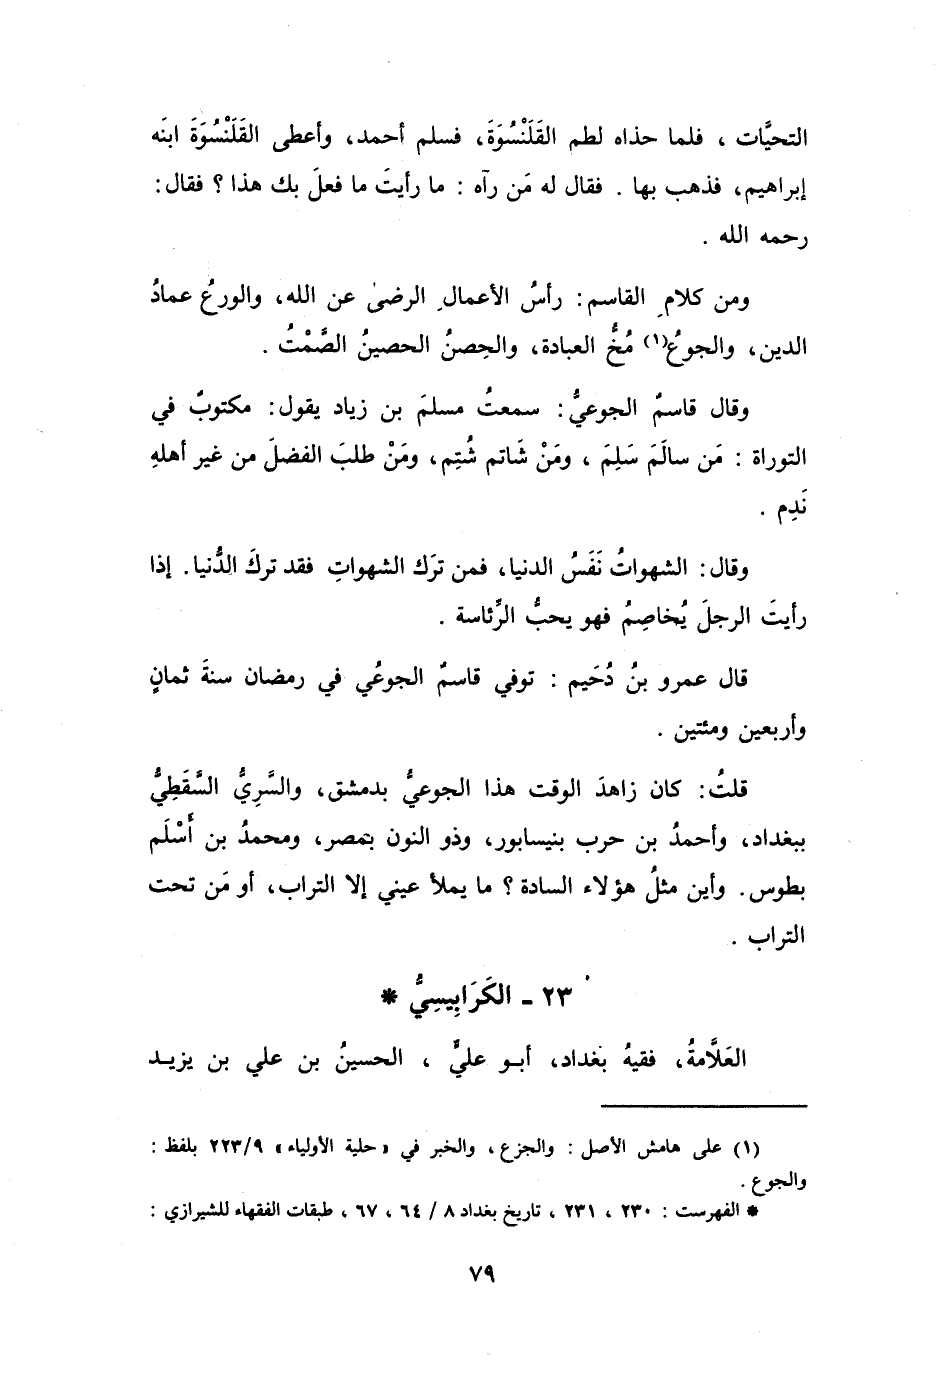 التحيَّات ، فلما حذاه لطم القَلَنْسُوَةَ، فسلم أحمد، وأعطى القَلَنْسُوَةَ ابنَه
إبراهيم، فذهب بها . فقال له مَن رآه : ما رأيتَ ما فعلَ بك هذا ؟ فقال:
رحمه الله .
ومن كلامِ القاسم: رأسُ الأعمالِ الرضىٰ عن الله، والورعُ عمادُ
الدين، والجوعُ(١) مُخُّ العبادة، والحِصنُ الحصينُ الصَّمْتُ .
وقال قاسمٌ الجوعيُّ: سمعتُ مسلمَ بن زياد يقول: مكتوبٌ في
التوراة : مَن سالَمَ سَلِمَ ، ومَنْ شَاتم شُتِم، ومَنْ طلبَ الفضلَ من غير أهلهِ
نَدِم .
وقال: الشهواتُ نَفَسُ الدنيا، فمن ترَك الشهواتِ فقد تركَ الدُّنيا. إذا
رأيتَ الرجلَ يُخاصِمُ فهو يحبُّ الرِّئاسة .
قال عمرو بنُ دُحَيم : توفي قاسمٌ الجوعُي في رمضان سنةَ ثمانٍ
وأربعين ومئتين .
قلتُ: كان زاهدَ الوقت هذا الجوعيُّ بدمشق، والسَّرِيُّ السَّقَطِيُّ
ببغداد، وأحمدُ بن حرب بنيسابور، وذو النون بمصر، ومحمدُ بن أَسْلَم
بطوس. وأين مثلُ هؤلاء السادة ؟ ما يملأ عيني إلا التراب، أو مَن تحت
التراب .
٢٣ - الكَرَابِيسِيُّ *
العَلَّامةُ، فقيهُ بغداد، أبو عليٍّ ، الحسينُ بن علي بن يزيد
(١) على هامش الأصل : والجزع، والخبر في «حلية الأولياء» ٢٢٣/٩ بلفظ :
والجوع .
* الفهرست : ٢٣٠ ، ٢٣١ ، تاريخ بغداد ٨ / ٦٤ ، ٦٧ ، طبقات الفقهاء للشيرازي :
٧٩